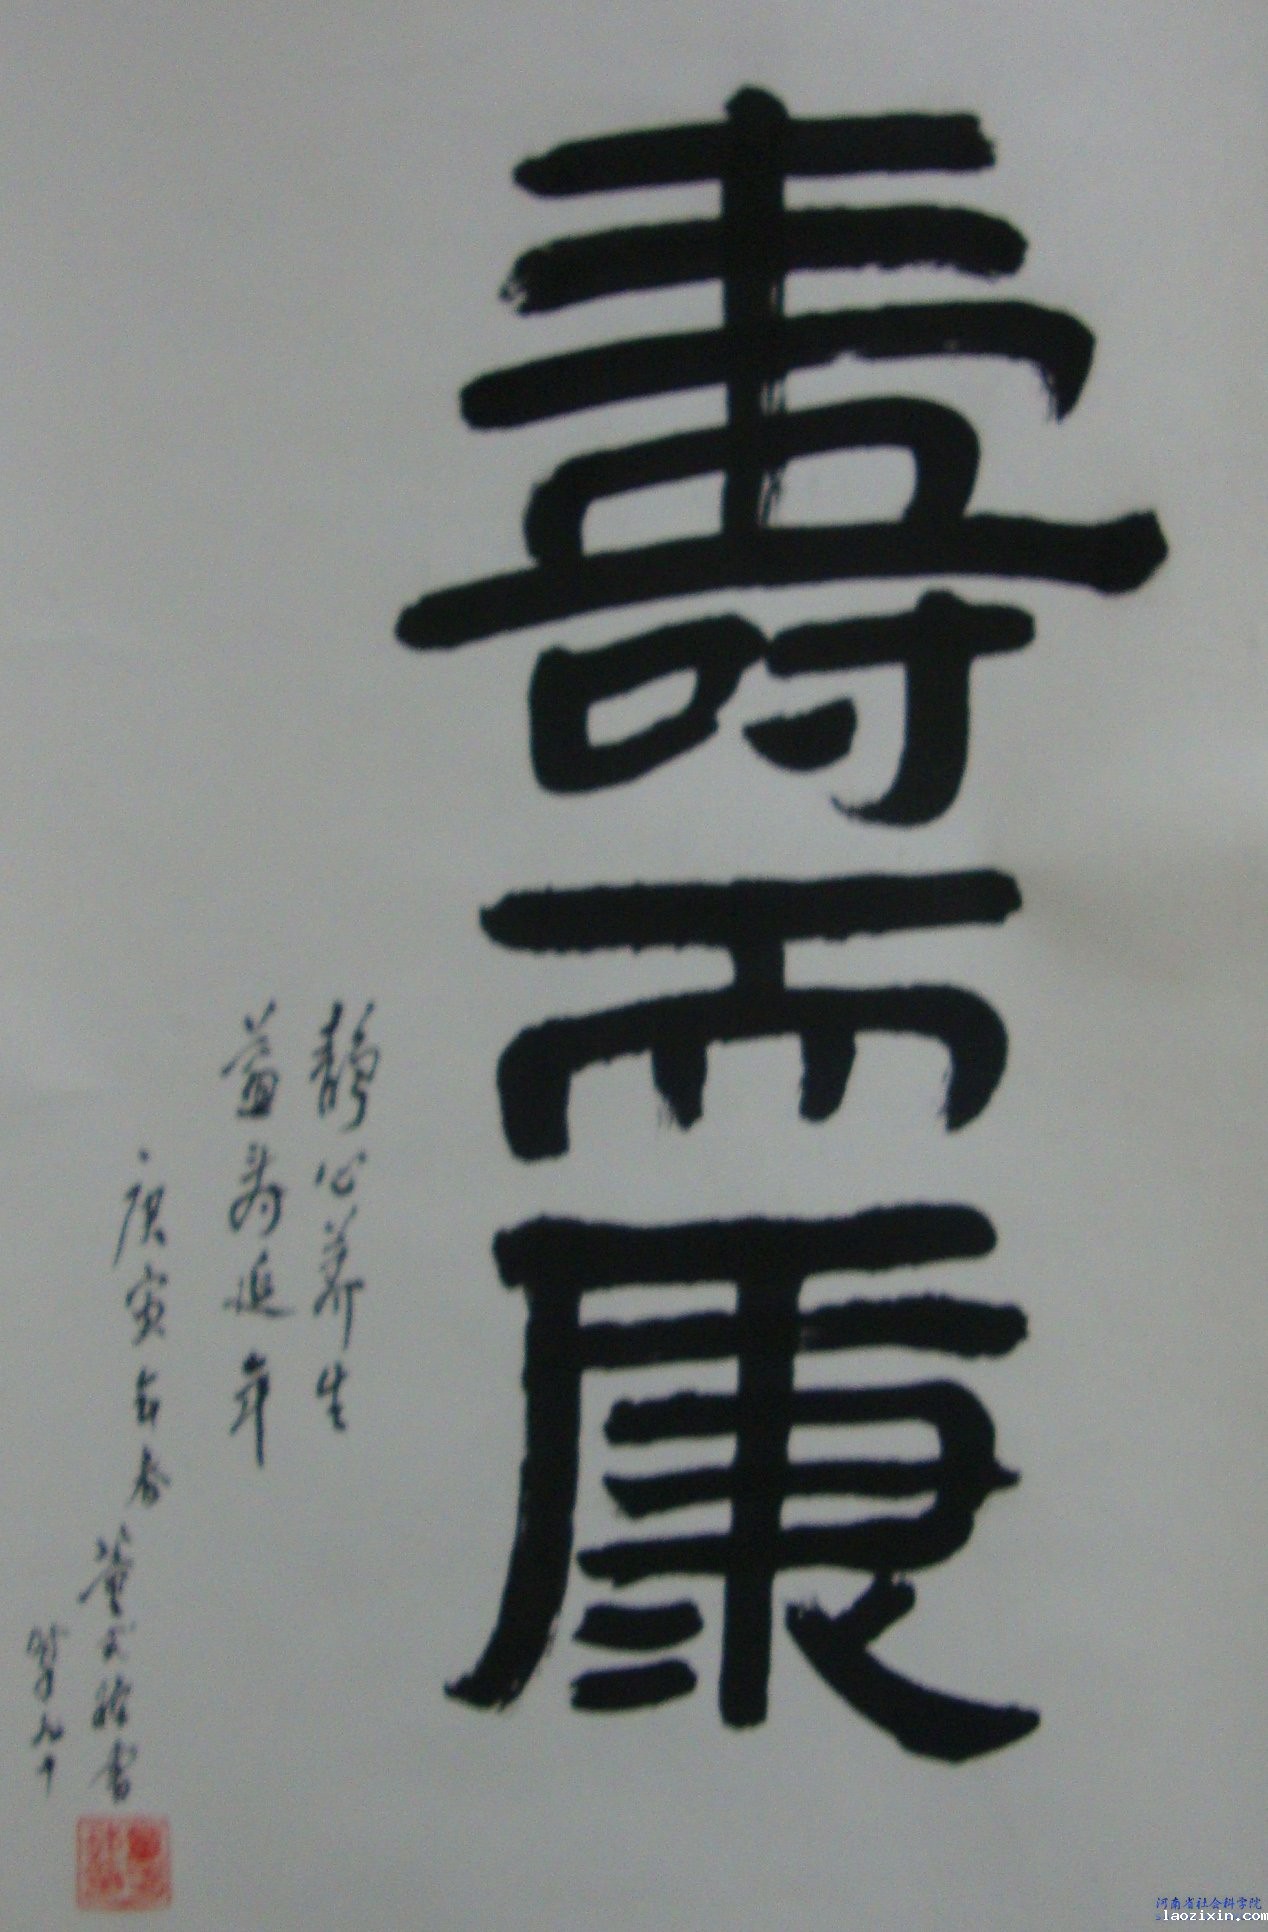 壽而康
靜心养生
益寿延年
庚寅年春
董 书
时年九十
河南省社会科学院
laozixin.com